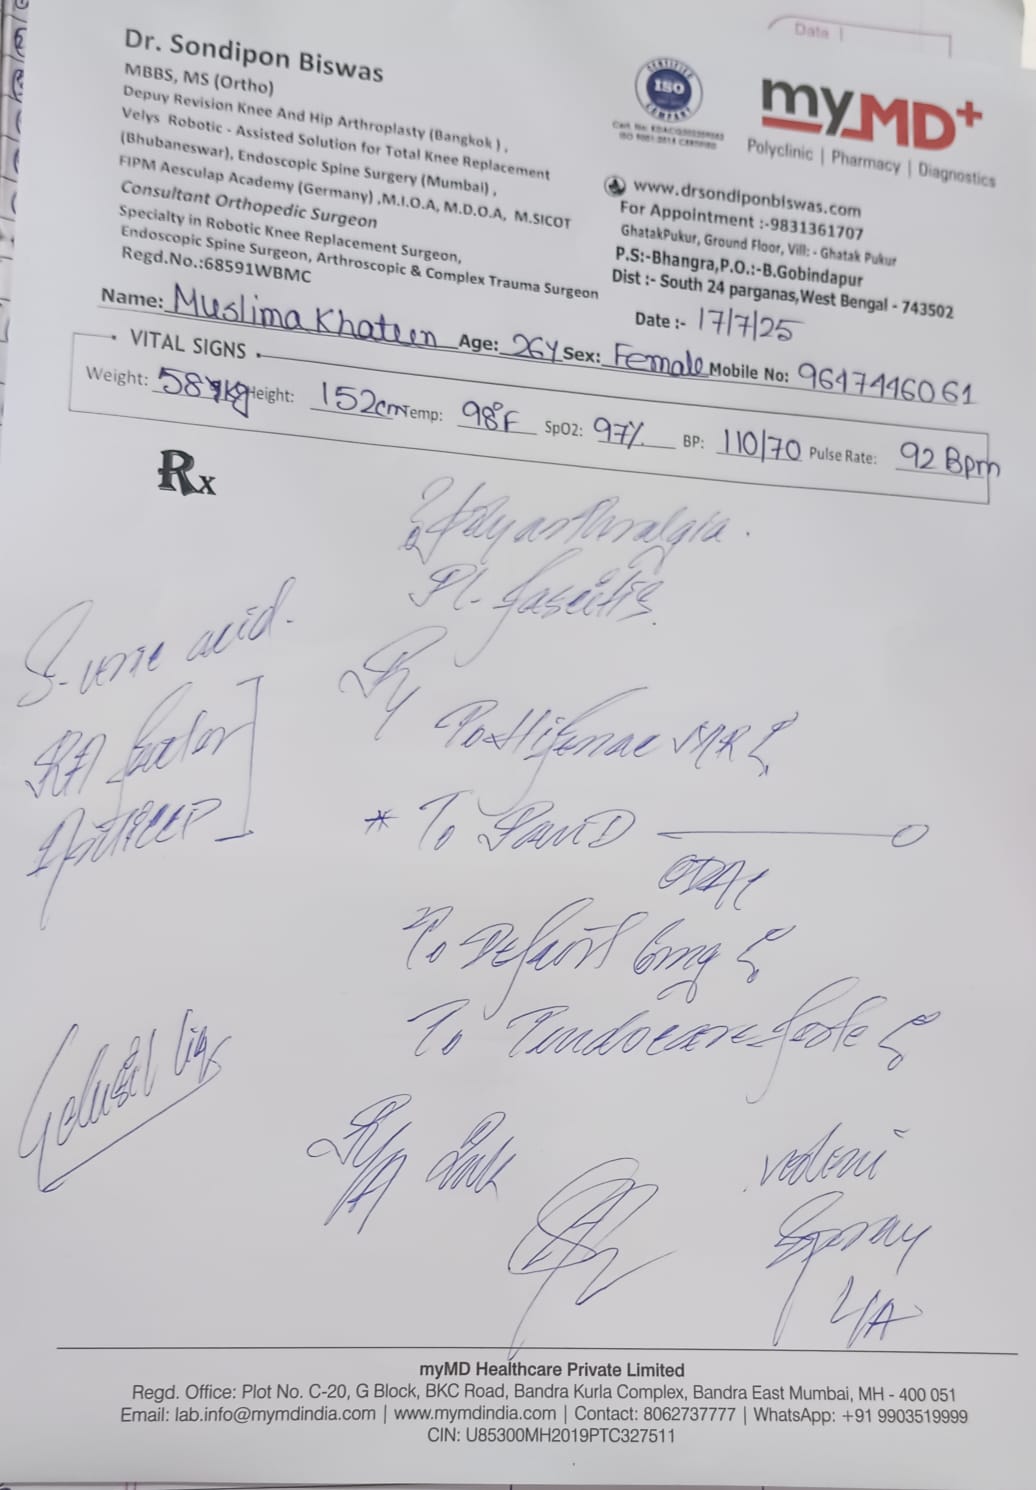 Data
Dr. Sondipon Biswas
MBBS, MS (Ortho)
Depuy Revision Knee And Hip Arthroplasty (Bangkok),
Velys Robotic - Assisted Solution for Total Knee Replacement
(Bhubaneswar), Endoscopic Spine Surgery (Mumbai),
FIPM Aesculap Academy (Germany) ,M.I.O.A, M.D.O.A, M.SICOT
Consultant Orthopedic Surgeon
Specialty in Robotic Knee Replacement Surgeon,
Endoscopic Spine Surgeon, Arthroscopic & Complex Trauma Surgeon
Regd.No.:68591WBMC
CERTIFIED
ISO
COMPANY
myMD+
Polyclinic | Pharmacy | Diagnostics
www.drsondiponbiswas.com
For Appointment :-9831361707
GhatakPukur, Ground Floor, Vill: - Ghatak Pukur
P.S:-Bhangra,P.O.:-B.Gobindapur
Dist :- South 24 parganas,West Bengal - 743502
Date :- 17/7/25
Name: Muslima Khatun Age: 26Y Sex: Female Mobile No: 9647446061
VITAL SIGNS
Weight: 58 kg Height: 152cm Temp: 98°F SpO2: 97% BP: 110/70 Pulse Rate: 92 Bpm
Rx
? Polyarthralgia.
Pl. fasciitis
S. uric acid.
RA factor
Anti CCP
MR
* To Pan D
To Defcort 6mg
To Tendocare forte
Gelusil liq
Spray
L/A
myMD Healthcare Private Limited
Regd. Office: Plot No. C-20, G Block, BKC Road, Bandra Kurla Complex, Bandra East Mumbai, MH - 400 051
Email: lab.info@mymdindia.com | www.mymdindia.com | Contact: 8062737777 | WhatsApp: +91 9903519999
CIN: U85300MH2019PTC327511